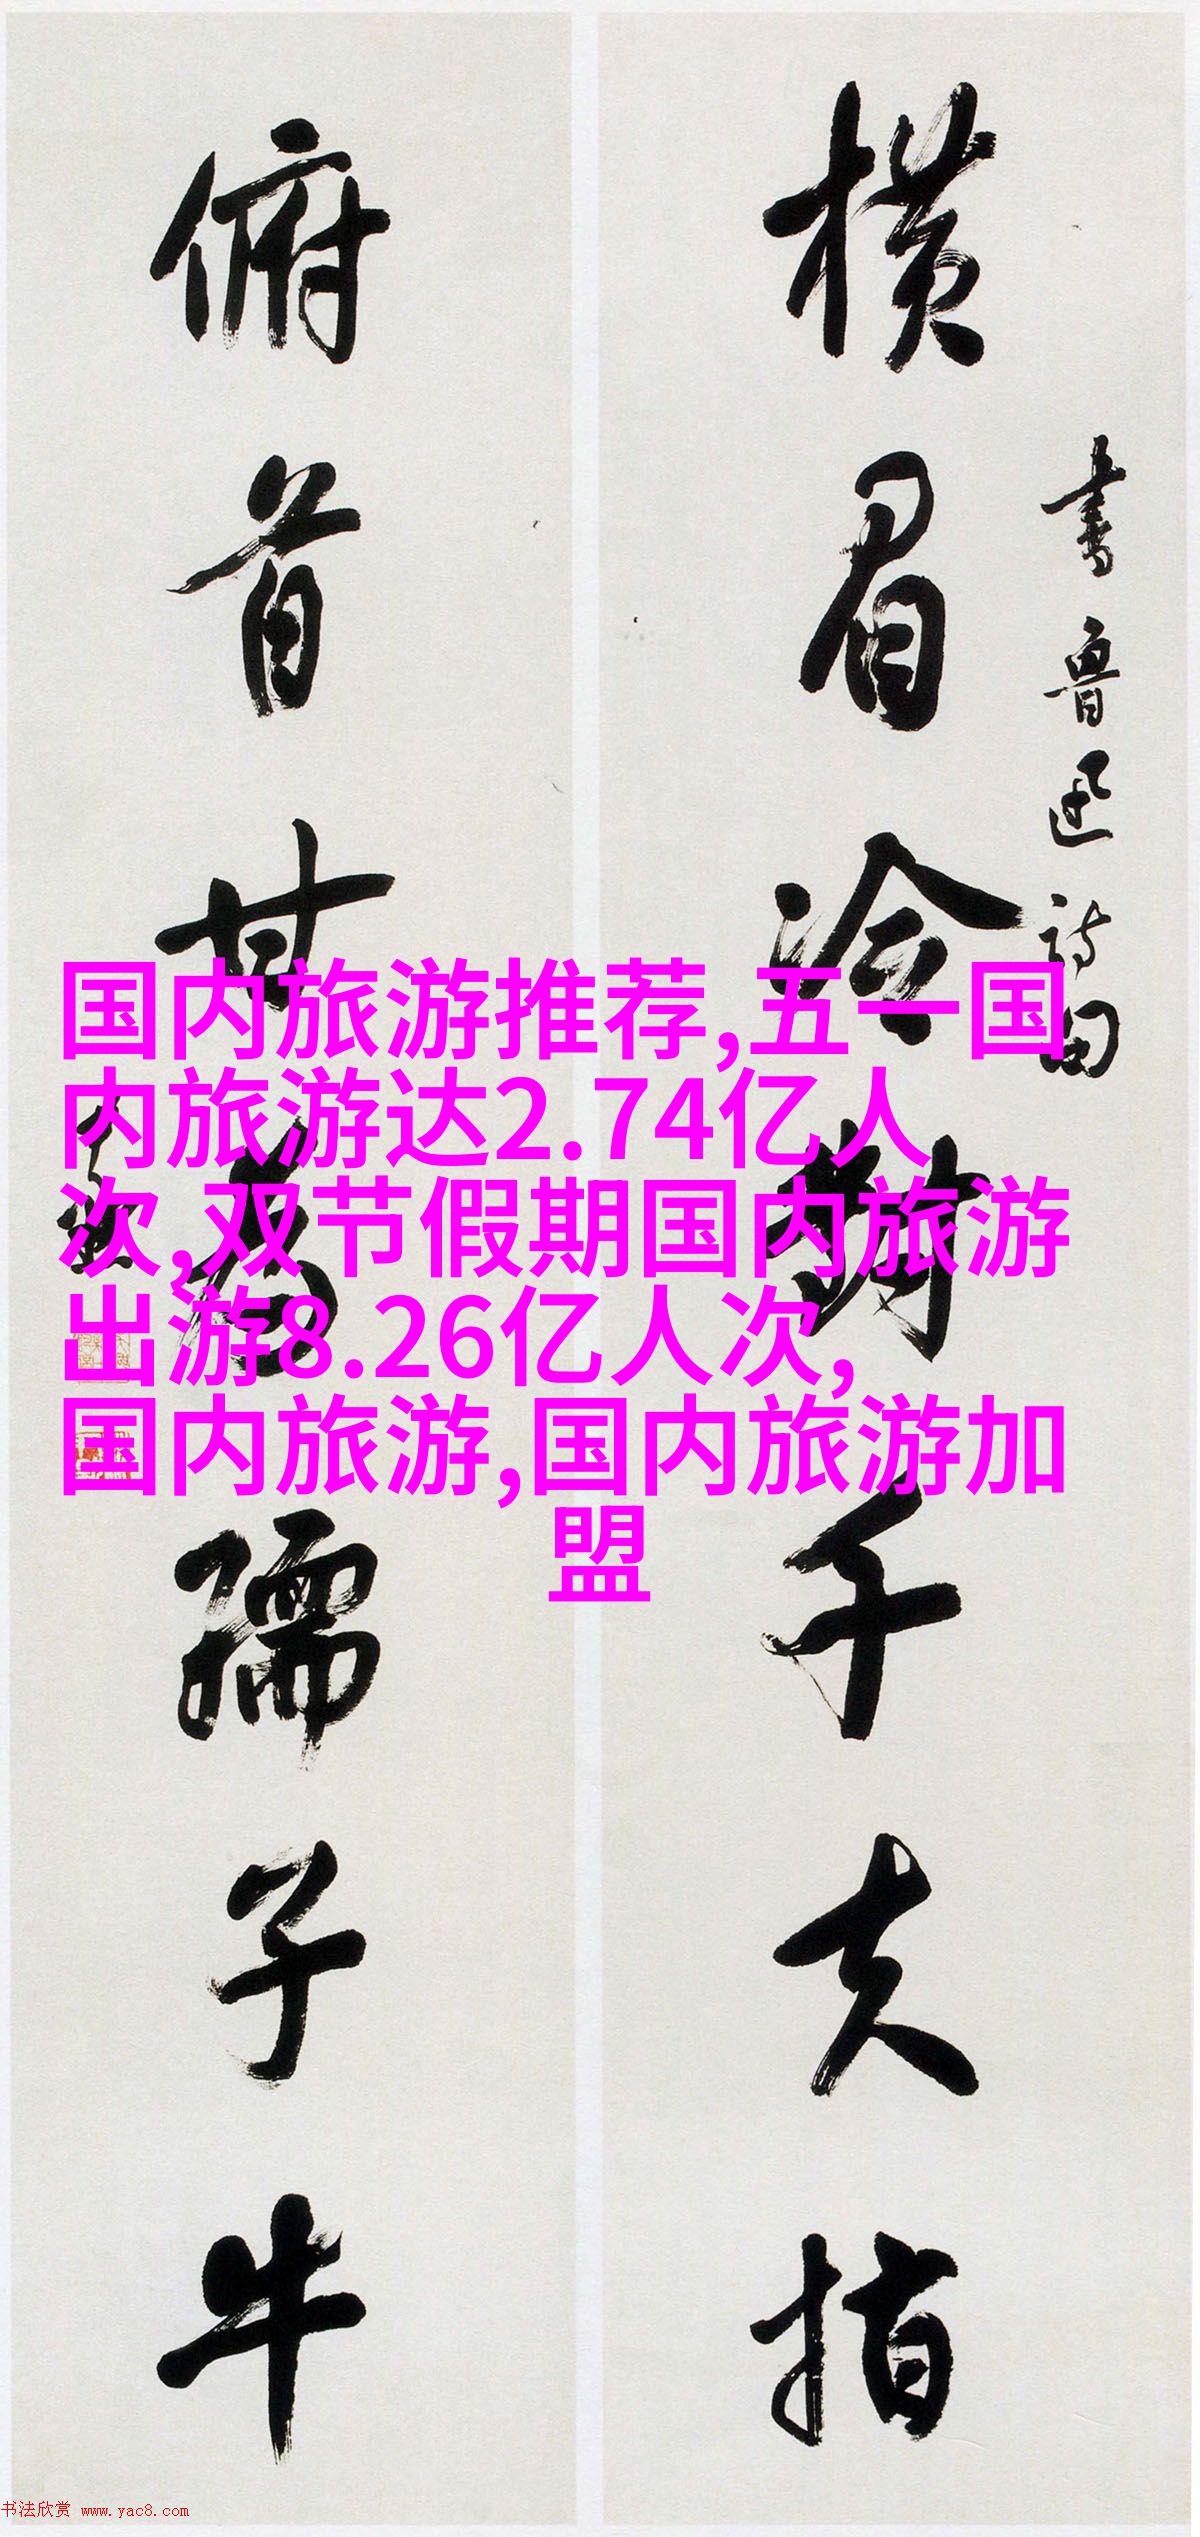 横眉冷对千夫指
书鲁迅诗句
俯首甘为孺子牛
国内旅游推荐,五一国
内旅游达2.74亿人
次,双节假期国内旅游
出游8.26亿人次,
国内旅游,国内旅游加
盟
书法欣赏 www.yac8.com